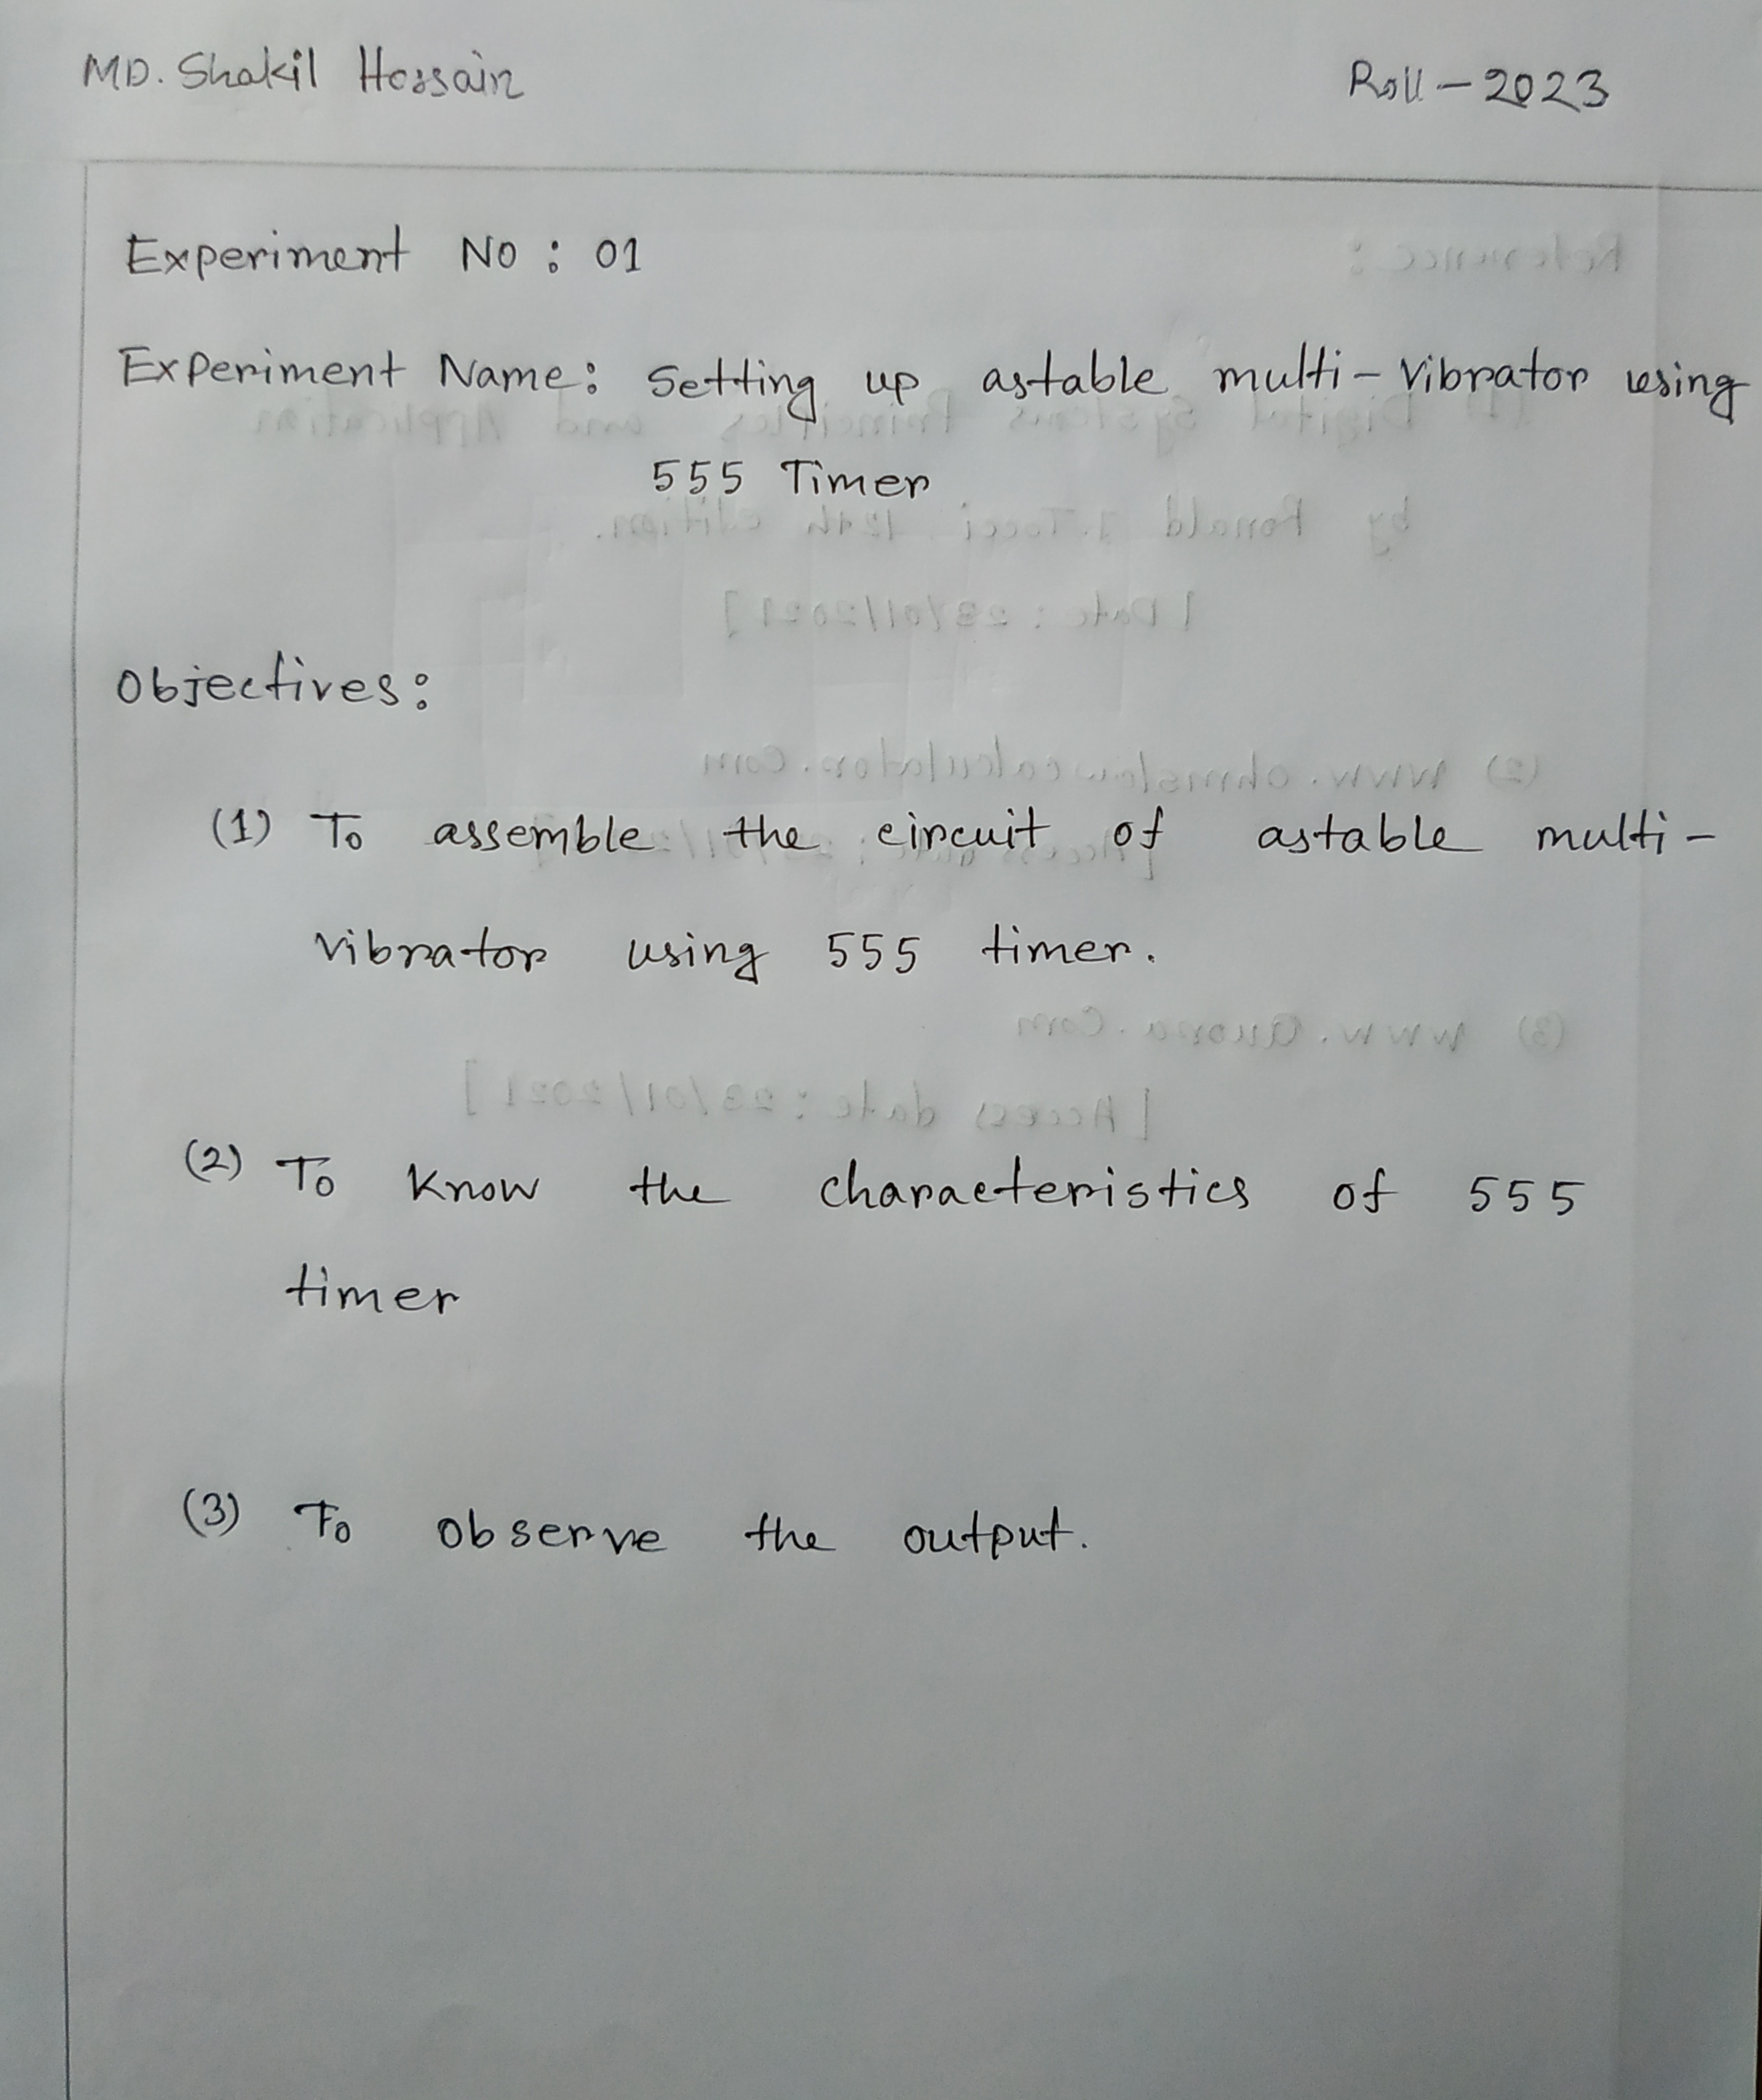 MD. Shakil Hossain Roll - 2023
Experiment No : 01
Experiment Name: Setting up astable multi-vibrator using
555 Timer
Objectives:
(1) To assemble the circuit of astable multi-
vibrator using 555 timer.
(2) To know the characteristics of 555
timer
(3) To observe the output.